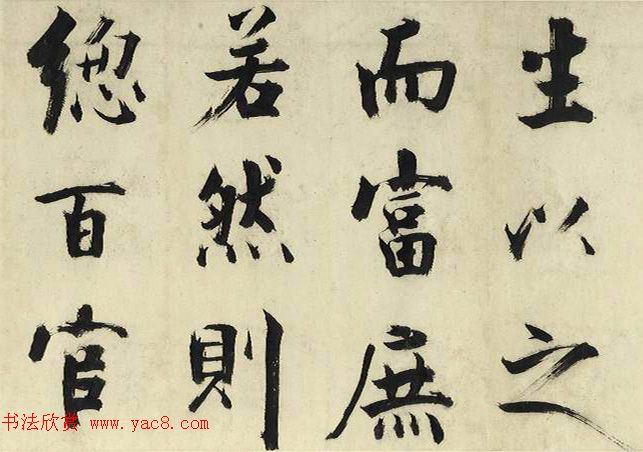 生以之
而富庶
若然則
總百官
书法欣赏 www.yac8.com